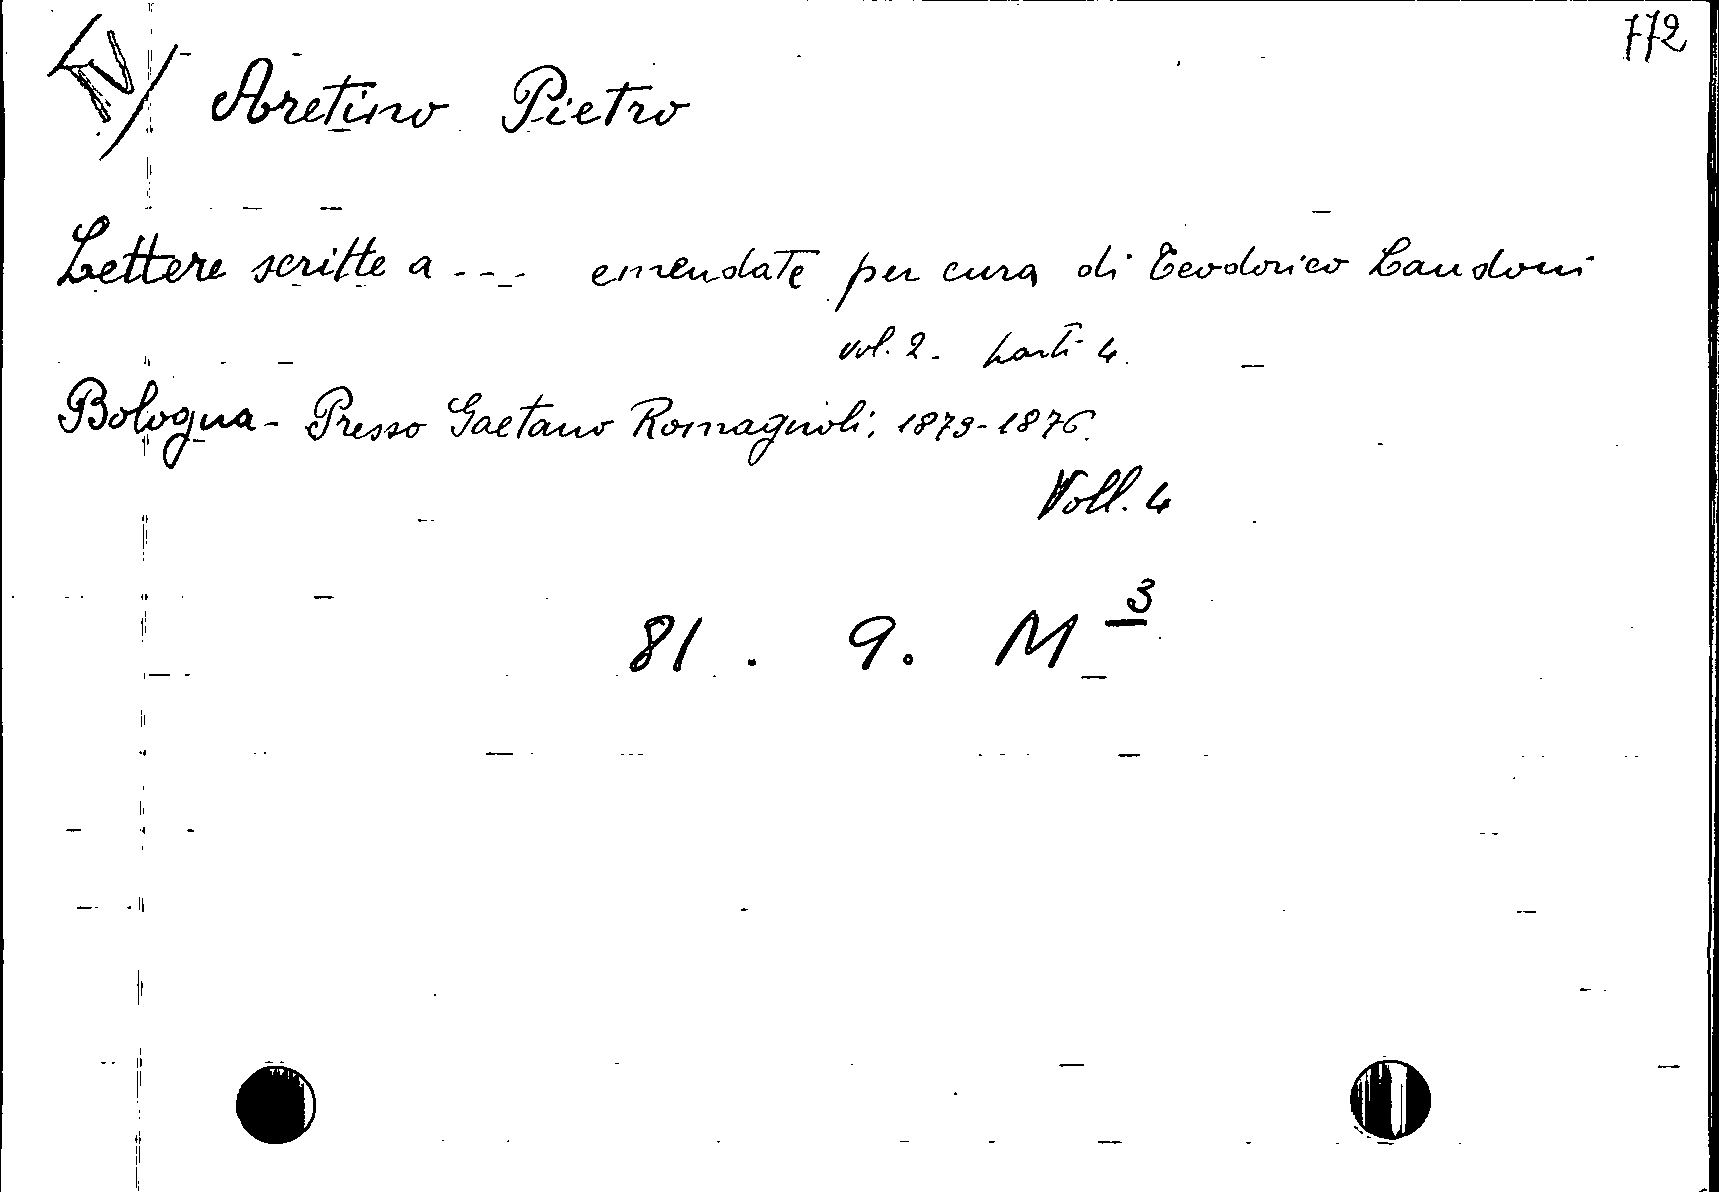 772
IV/ Aretino Pietro
Lettere scritte a --- emendate per cura di Teodorico Landoni
vol. 2. parti 4.
Bologna - Presso Gaetano Romagnoli, 1873-1876.
Voll. 4
81. 9. M 3